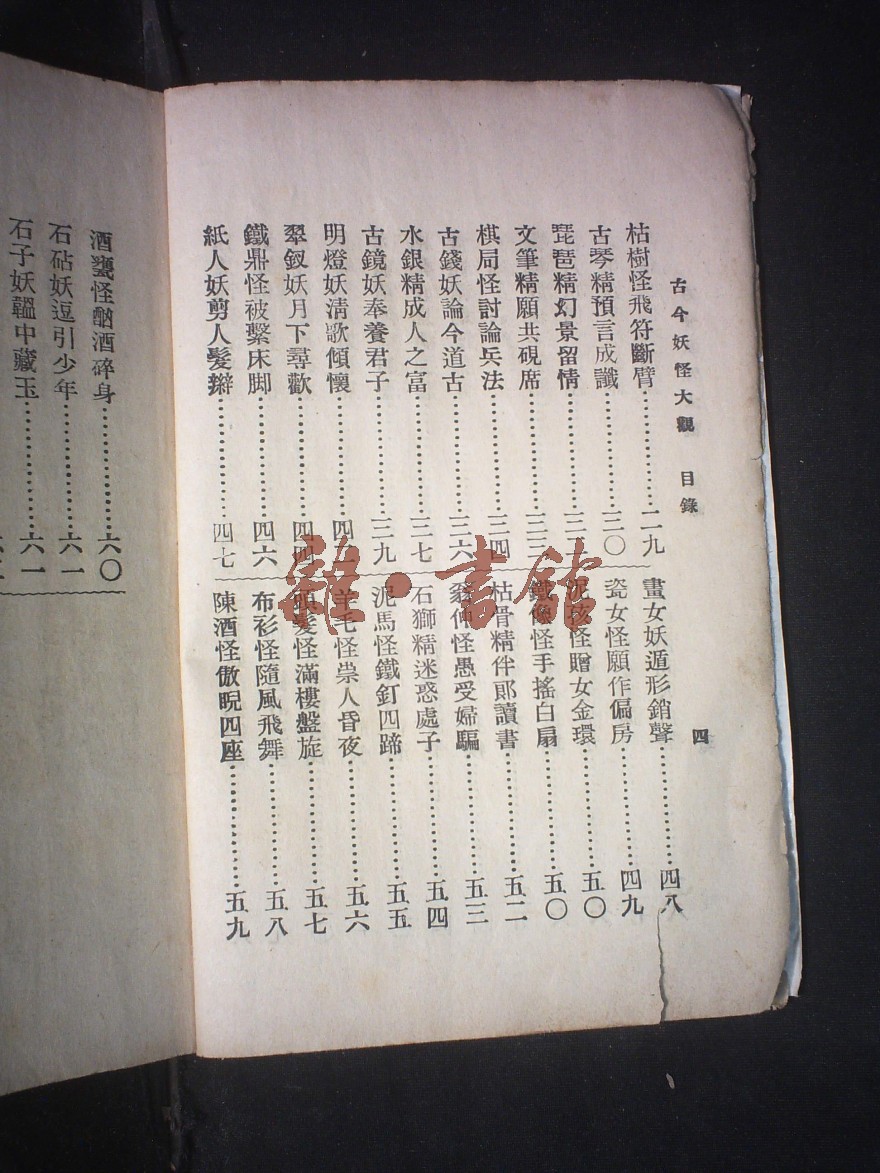 古今妖怪大觀 目錄 四
枯樹怪飛符斷臂 二九
古琴精預言成讖 三〇
琵琶精幻景留情
文筆精願共硯席 三三
棋局怪討論兵法 三四
古錢妖論今道古 三六
水銀精成人之富 三七
古鏡妖奉養君子 三九
明燈妖清歌傾懷
翠釵妖月下尋歡 四四
鐵鼎怪被繫床脚 四六
紙人妖剪人髮辮 四七
畫女妖遁形銷聲 四八
瓷女怪願作偏房 四九
泥孩怪贈女金環 五〇
鐵像怪手搖白扇 五〇
枯骨精伴郎讀書 五二
翁仲怪愚受婦騙 五三
石獅精迷惑處子 五四
泥馬怪鐵釘四蹄 五五
羊毛怪祟人昏夜 五六
頭髮怪滿樓盤旋 五七
布衫怪隨風飛舞 五八
陳酒怪傲睨四座 五九
酒甕怪酗酒碎身 六〇
石砧妖逗引少年 六一
石子妖韞中藏玉 六一
雜·書館